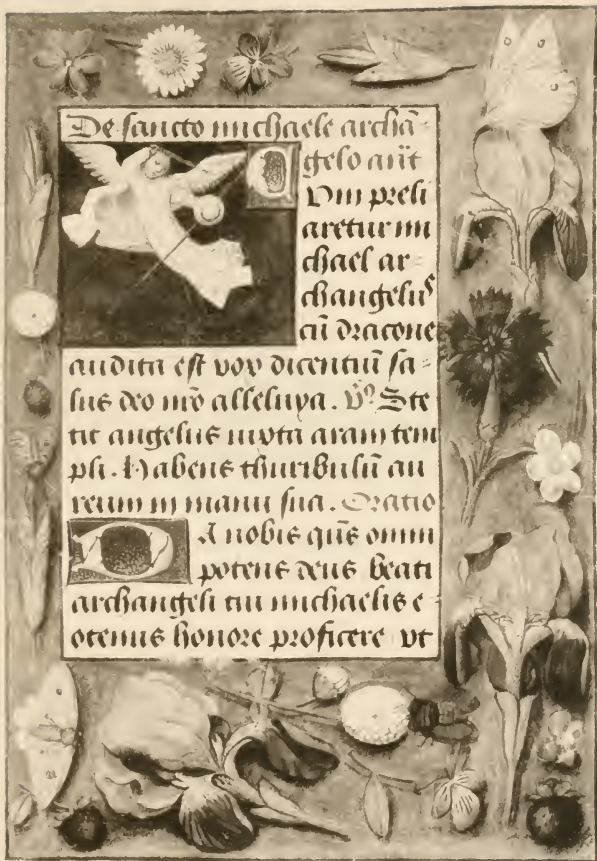 De sancto michaele archā
gelo añt
Dum preli
aretur mi
chael ar
changelus
cū dracone
audita est vox dicentiū sa
lus deo nr̄o alleluya. V̄. Ste
tit angelus iuxta aram tem
pli. Habens thuribulū au
reum in manu sua. Oratio
Da nobis qu̅s omni
potens deus beati
archangeli tui michaelis e
otenus honore proficere vt